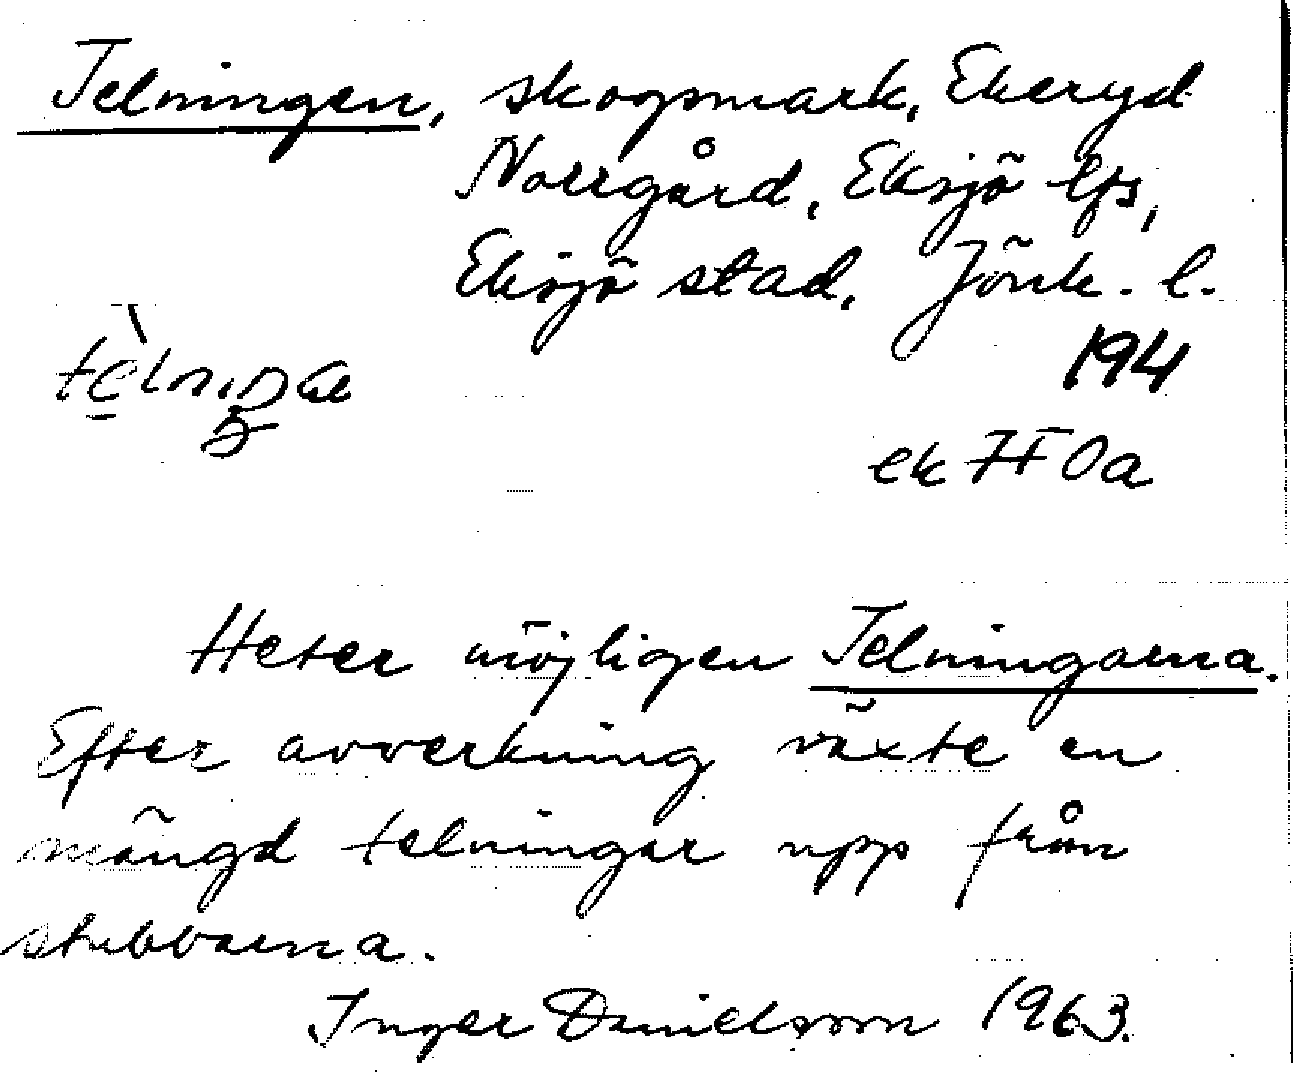 Telningen, skogsmark, Ekeryd
Norrgård, Eksjö lfs,
Eksjö stad, Jönk. l.
194
ek 7F0a
Heter möjligen Telningarna.
Efter avverkning växte en
mängd telningar upp från
stubbarna.
Inger Danielsson 1963.